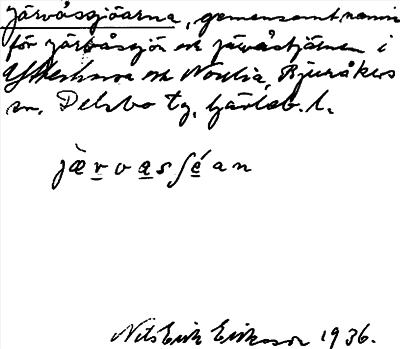 Järvåssjöarna, gemensamt namn
för Järvåssjön och Järvåstjärnen i
Ytterhavra och Norrlia, Bjuråkers
sn, Delsbo tg, Gävleb. l.
jæ̀rvåsʃéan
Nils Erik Eriksson 1936.